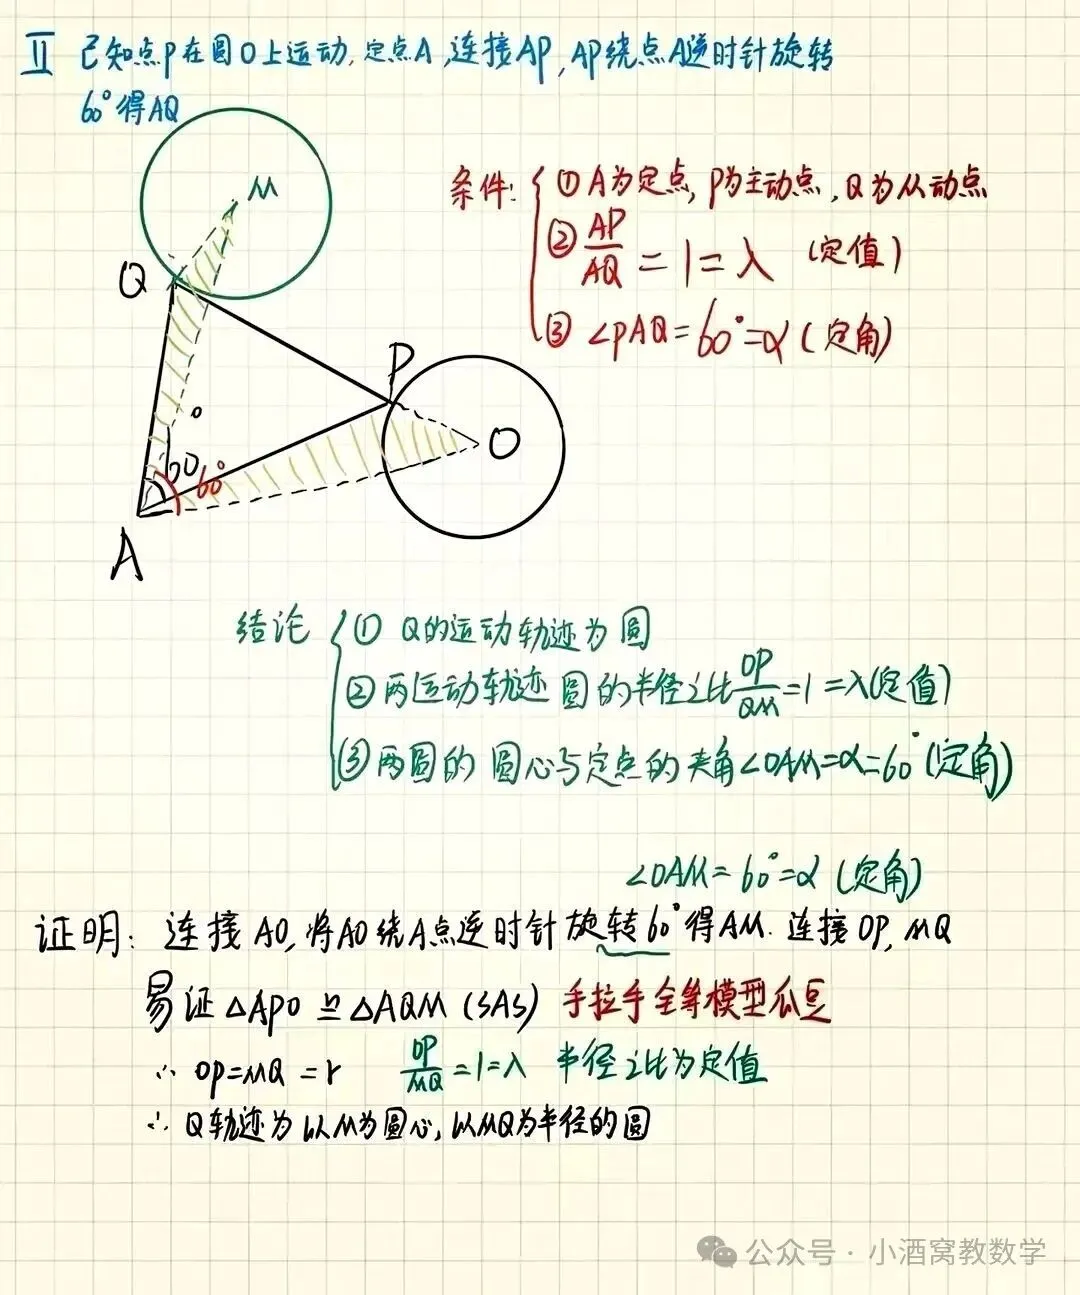 Ⅱ 已知点P在圆O上运动,定点A,连接AP,AP绕点A逆时针旋转
60°得AQ
M
条件: ① A为定点, P为主动点, Q为从动点
② AP/AQ = 1 = λ (定值)
Q
③ ∠PAQ = 60° = α (定角)
P
O
60°
60°
A
结论 ① Q的运动轨迹为圆
② 两运动轨迹圆的半径之比OP/QM = 1 = λ(定值)
③ 两圆的圆心与定点的夹角∠OAM=α=60°(定角)
∠OAM = 60° = α (定角)
证明: 连接AO, 将AO绕A点逆时针旋转60°得AM. 连接OP, MQ
易证△APO ≌ △AQM (SAS) 手拉手全等模型瓜豆
∴ OP=MQ = r OP/MQ = 1 = λ 半径之比为定值
∴ Q轨迹为以M为圆心, 以MQ为半径的圆
公众号 · 小酒窝教数学